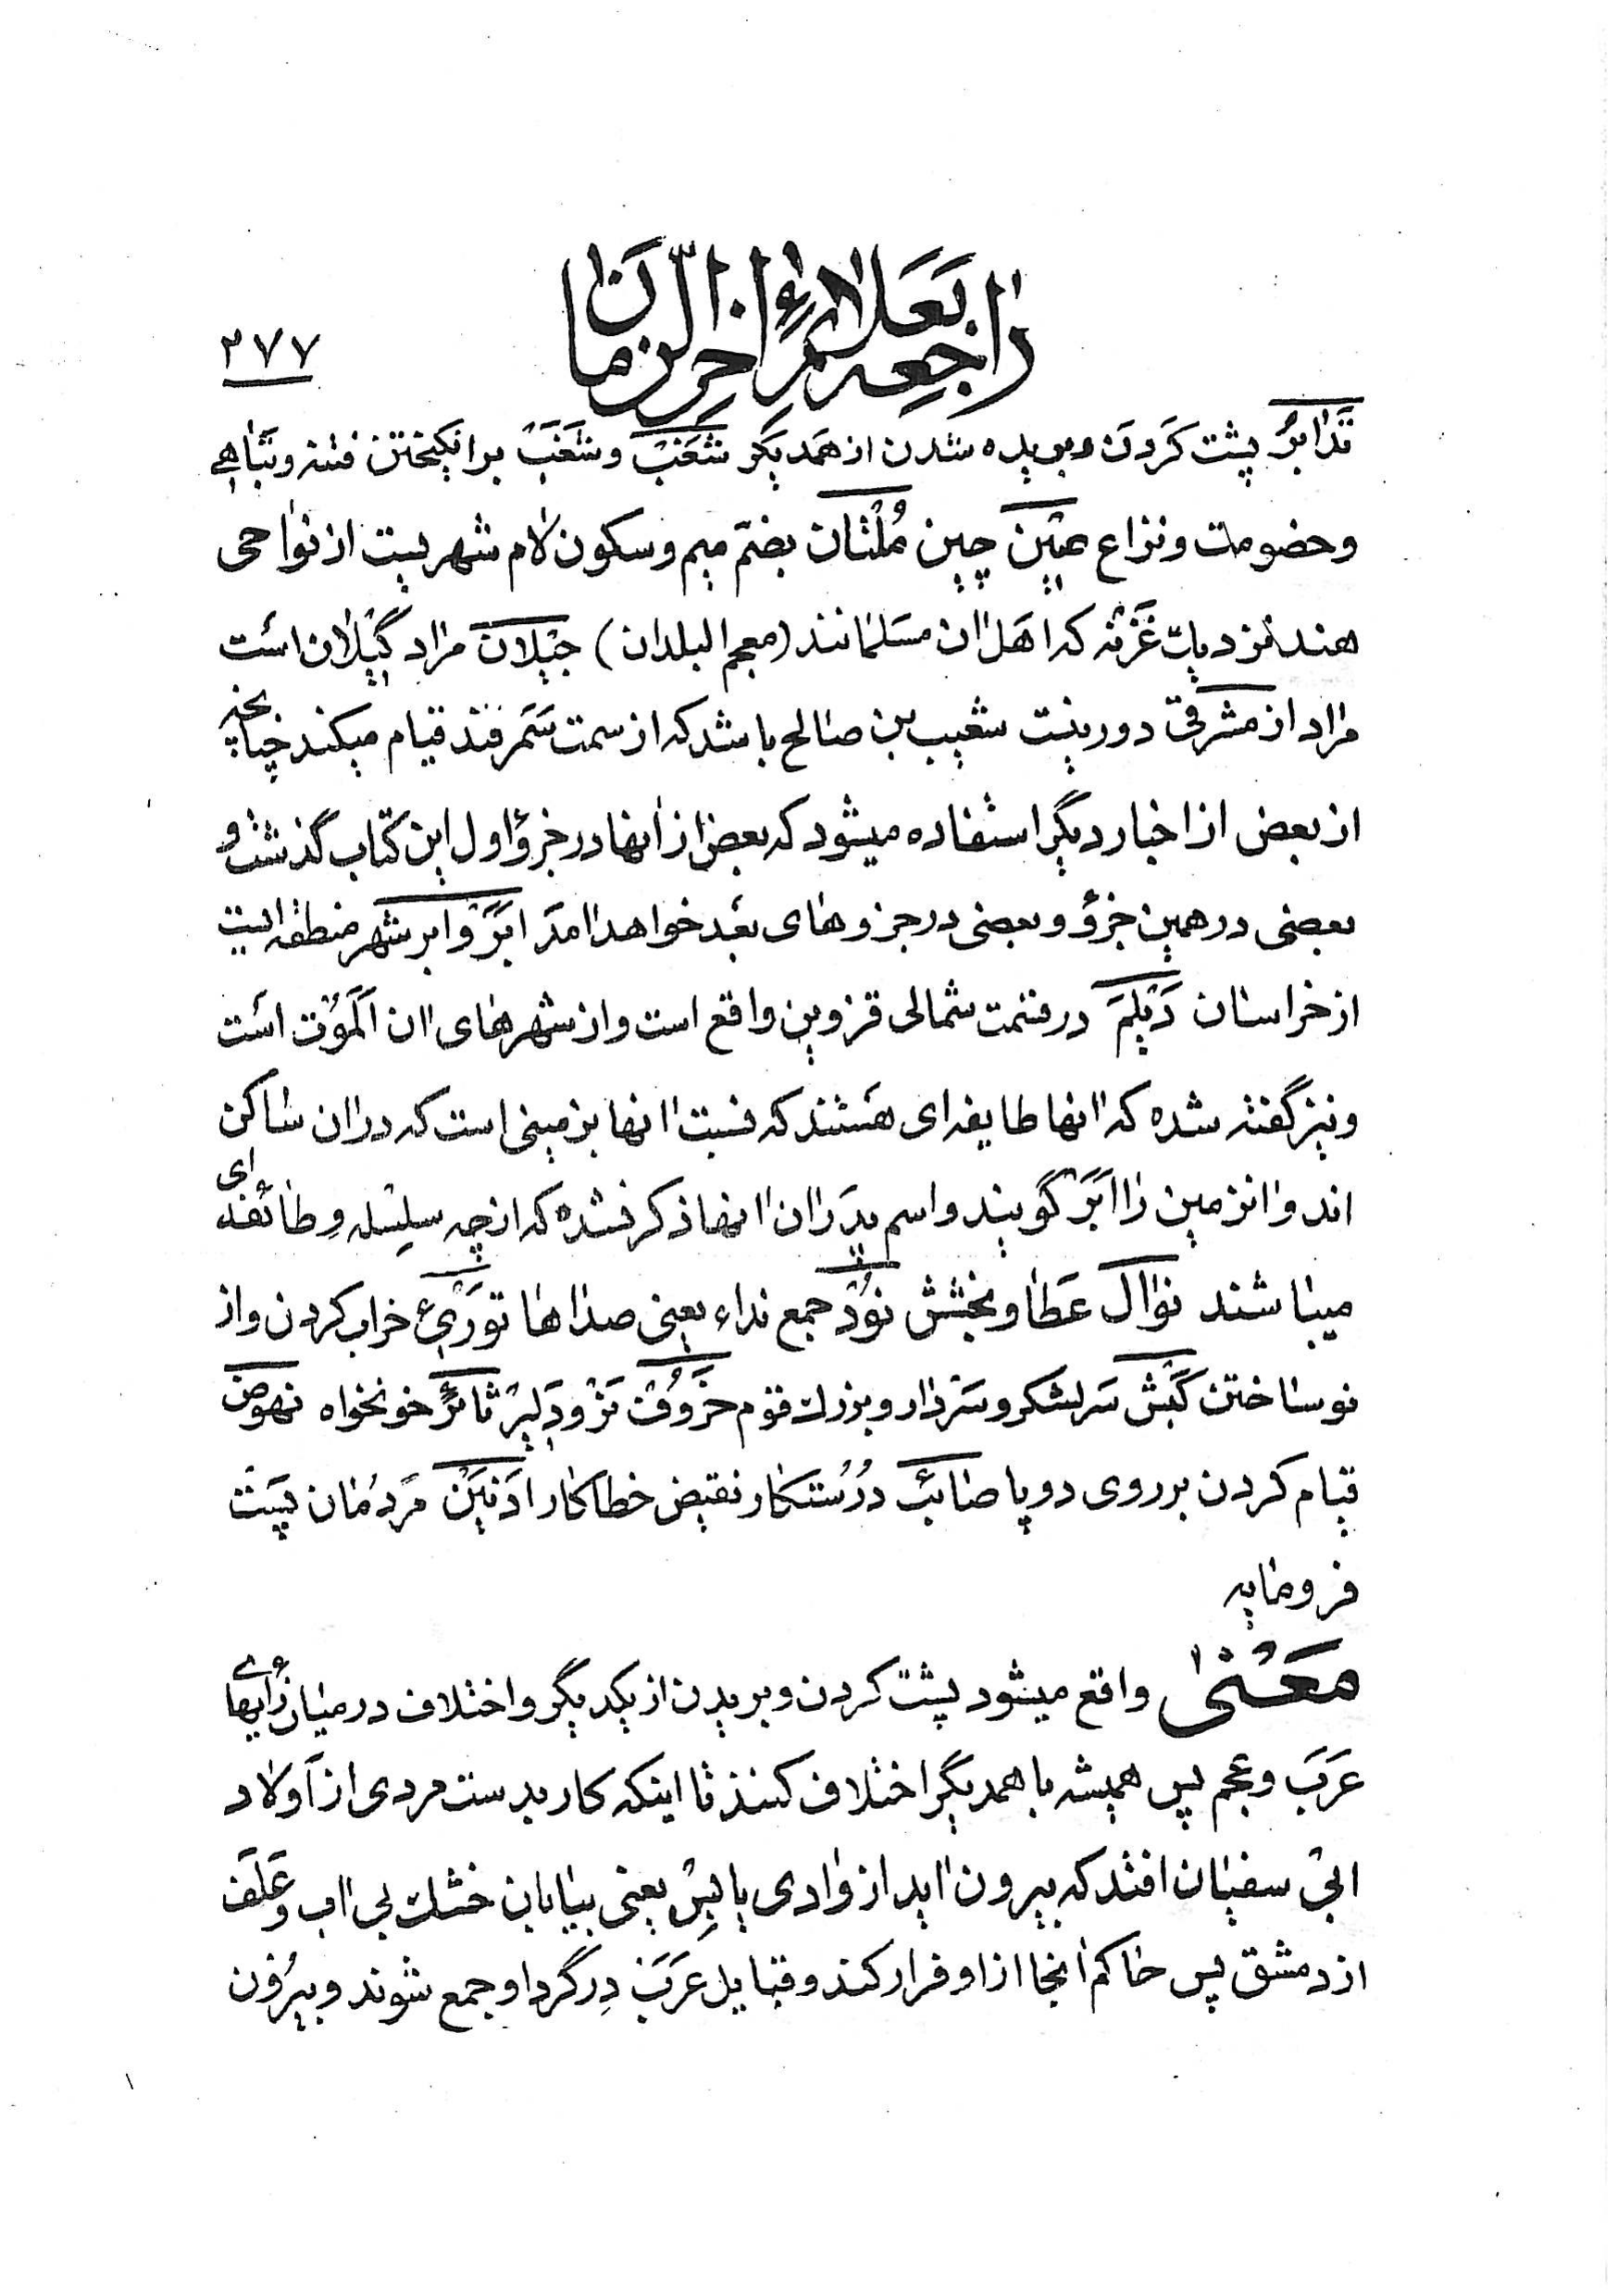 راجعه بعلائم آخر الزمان
۲۷۷
تَدابُر پشت کَردَن و بریده شدن از هَمدیگر شَغْب و شَغَب برانگیختن فتنه و تباهی
و خصومت و نزاع صین چین مُلْتان بضمّ میم و سکون لام شهریست از نواحی
هند نزدیک غَزنه که اهل ان مسلمانند (معجم البلدان) جیلان مراد گیلان است
مراد از مشرقی دور نیست شعیب بن صالح باشد که از سمت سَمَرقند قیام میکند چنانچه
از بعض از اخبار دیگر استفاده میشود که بعض از انها در جزؤ اول این کتاب گذشت و
بعضی در همین جزؤ و بعضی در جزوهای بعد خواهد امد ابَرّ و ابر شهر منطقه ایست
از خراسان دَیْلَم در قسمت شمالی قزوین واقع است و از شهرهای ان اَلَمُوت است
و نیز گفته شده که انها طایفه ای هستند که نسبت انها بزمینی است که در ان ساکن
اند و انزمین را ابَرّ گویند و اسم پدران انها ذکر نشده که از چه سلسله و طائفه ای
میباشند نوال عَطا و بخشش نُوَد جمع نداء یعنی صداها تورَیء خراب کردن و از
نو ساختن کَبْش سَرلشکر و سَردار و بزرگ قوم حَرُوق تَرْو دَلیر ثائرٌ خونخواه نهوض
قیام کردن بر روی دو پا صائب دُرُستکار نقیض خطاکار ادَنین مَردمان پَست
فرومایه
معنی واقع میشود پشت کردن و بریدن از یکدیگر و اختلاف در میان رأیهای
عَرَب و عجم پس همیشه با همدیگر اختلاف کنند تا اینکه کار بدست مردی از اَولاد
ابی سفیان افتد که بیرون اید از وادی یابِس یعنی بیابان خشک بی اب و عَلَف
از دمشق پس حاکم انجا از او فرار کند و قبایل عَرَب دِر گرد او جمع شوند و بیرون